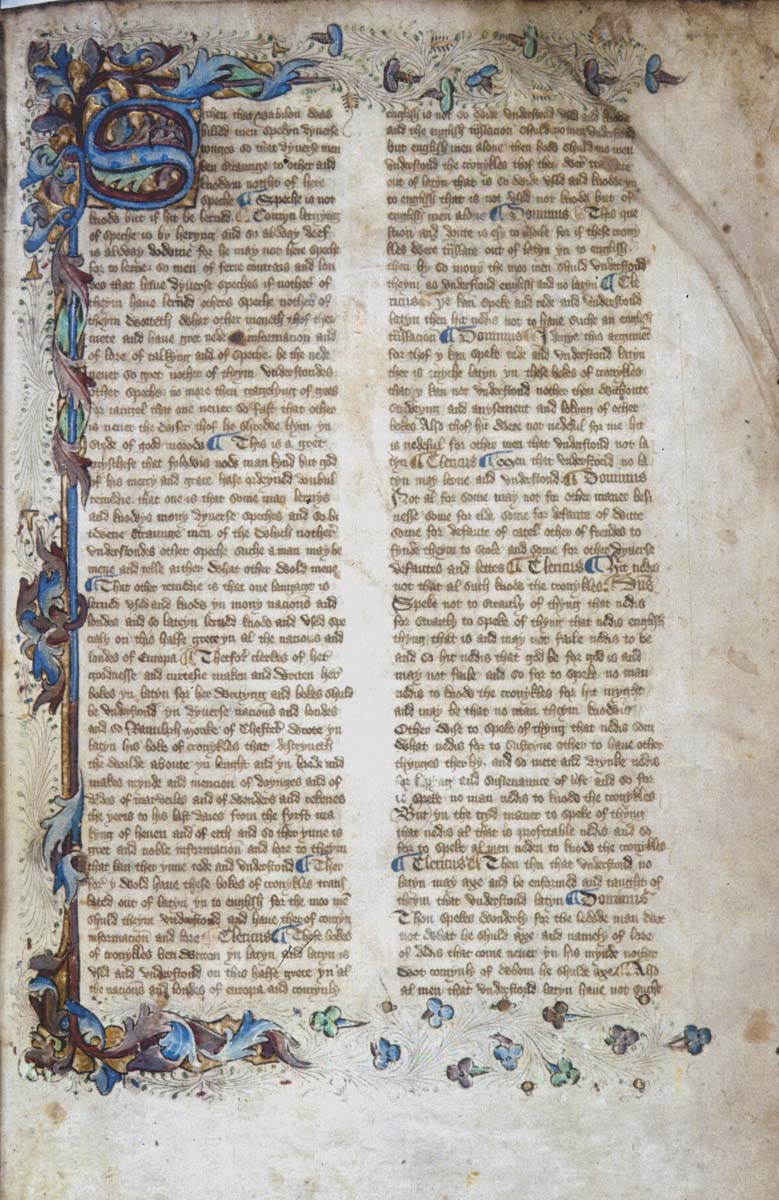 Sithen that babilon was
billed men spekyn dyverse
tonges so that dyverse men
ben straunge to other and
knowen notght of here
speche ¶ Speche is not
knowe but if hit be lerned. Comyn lernyng
of speche is by heryng and so alway deef
is alway dombe for he may not here speche
for to lerne. so men of ferre contrais and lon
des that have dyverse speches if nother of
theym have lerned others speche nother of
theym wotteth what other meneth thof thei
mete and have gret nede information and
of lore of talkyng and of speche. be the nede
never so gret nother of theym understondes
other speche no more then gagelyng of gees
for iangel that one never so fast that other
is never the wiser thof he shrewe hym yn
stede of good morow ¶ This is a gret
myschefe that folowis now man kynd but god
of his mercy and grace hase ordeyned doubul
remedie. that one is that some man lernys
and knowys mony dyverse speches and so bi
twene straunge men of the which nother
understondes other speche suche a man may be
mene and telle ayther what other wold mene
¶ That other remedie is that one langage is
lerned used and knowe yn mony nacions and
londes and so latyn lerned know and used spe
cialy on this halfe grece yn al the nacions and
londes of Europa ¶ Therfor clerkes of her
goodnesse and curtesie maken and writen her
bokes yn latyn for her writyng and bokes shuld
be understond yn dyverse nacions and londes
and so Ranulph monke of Chestre wrote yn
latyn his boke of cronykles that descryveth
the worlde aboute yn lenght and yn brede and
makes mynde and mencion of doynges and of
dedes of mervelus and of wonders and rekenes
the yeris to his last daies from the fyrst ma
kyng of heven and of erth and so ther ynne is
gret and noble information and lore to theym
that kan ther ynne rede and understond ¶ Ther
for y wold have these bokes of cronykles trans
lated out of latyn yn to english for the moo men
shuld theym understond and have ther of conyn
information and lore Clericus ¶ These bokes
of cronykles ben writton yn latyn and latyn is
used and understond on this halfe grece yn al
the nacions and londes of europa and comynly
english is not so wide understond used and knowe
and the english translacion shuld no men understond
but english men alone then how shuld no moo men
understond the cronykles thof thei were translate
out of latyn that is so wide used and knowe yn
to english that is not used nor knowe but of
english men alone ¶ Dominus ¶ This que
stion and doute is esy to assoile for if these crony
kles were translate out of latyn yn to english
then by so mony the moo men shuld understond
theym as understond english and no latyn ¶ Cle
ricus Ye kan speke and rede and understond
latyn then hit nedis not to have suche an english
translacion ¶ Dominus I denye this argument
for thof y kan speke rede and understond latyn
ther is myche latyn yn these bokes of cronykles
that y kan not understond nother thou withoute
studeyng and avysement and lokyng of other
bokes Also thof hit were not nedeful for me hit
is nedeful for other men that understond not la
tyn ¶ Clericus ¶ Men that understond no la
tyn may lerne and understond ¶ Dominus
Not al for some may not for other maner besi
nesse some for elde some for defaute of witte
some for defaute of catel other of frendes to
fynde theym to scole and some for other dyverse
defautes and lettes ¶ Clericus ¶ Hit nedis
not that al such knowe the cronykles. Dns
Speke not to straitly of thyng that nedis
for straitly to speke of thyng that nedis english
thyng that is and may not faile nedis to be
and so hit nedis that god be for god is and
may not faile and so for to speke no man
nedis to knowe the cronykles for hit myght
and may be that no man theym knowis
Other wise to speke of thyng that nedis som
what nedis for to susteyne other to have other
thynges ther by. and so mete and drynke nedis
for kepyng and sustenaunce of life and so for
to speke no man nedis to knowe the cronykles
But yn the tryd maner to speke of thyng
that nedis al that is profetable nedis and so
for to speke al men neden to know the cronykles
¶ Clericus ¶ Then thei that understond no
latyn may axe and be enformed and taught of
theym that understond latyn ¶ Dominus
Thou spekes wonderly for the lewde man wot
not what he shuld axe and namely of lore
of dedis that come never yn his mynde nother
wot comynly of whom he shulde axe ¶ Also
al men that understond latyn have not suche